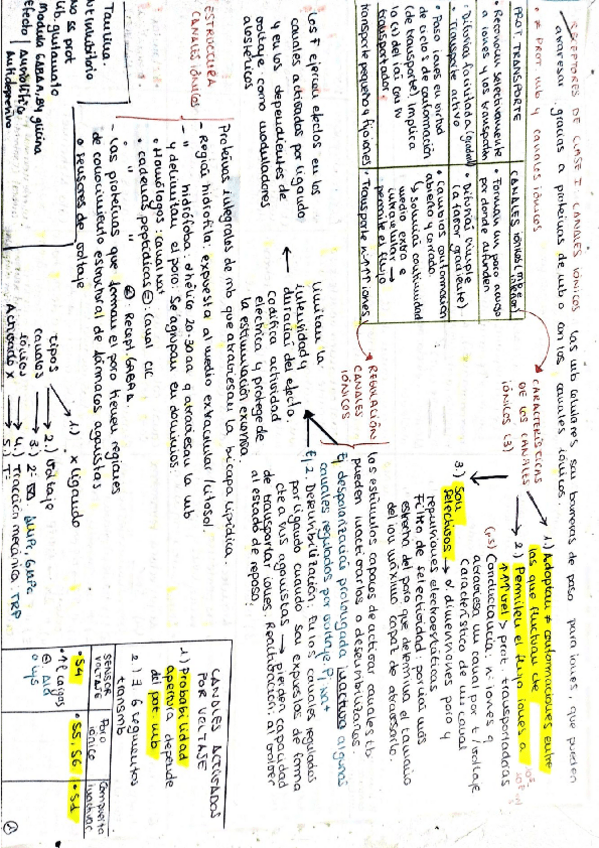 RECEPTORES DE CLASE I: CANALES IÓNICOS
Las mb celulares son barreras de paso para iones, que pueden
atravesar gracias a proteinas de mb o con los canales iónicos.
* PROT mb y canales iónicos
PROT. TRANSPORTE
• Reconocen selectivamente
a iones y los transportan
• Difusión facilitada (gradiente)
• Transporte activo
• Paso iones en virtud
de ciclos de conformación
(de transporte) implica
transportador
transporte pequeño y fijo iones
CANALES IÓNICOS
• Forman un poro acuoso
por donde difunden
• Difusión simple
(a favor gradiente)
• Cambios conformación
abierto y cerrado
↳ solución continuidad
medio extra e
intracelular →
permite el flujo
• Transporte n. ↑↑↑ iones
CARACTERÍSTICAS
DE LOS CANALES
IÓNICOS (3)
1.) Adoptan ≠ conformaciones entre
las que fluctúan
2.) Permiten el flujo iones a
↑↑↑ vel > prot. transportadoras
Conductancia: nº iones q
atraviesa un canal por t y voltaje
Característico de un canal
3.) Son
selectivos → dimensiones poro y
repulsiones electrostáticas
Filtro de selectividad: parte más
estrecha del poro que determina el tamaño
del ion máximo capaz de atravesarlo.
REGULACIÓN
CANALES
IÓNICOS
los estímulos capaces de activar canales tb
pueden inactivarlos o desensibilizarlos.
Ej despolarización prolongada inactiva algunos
canales regulados por voltaje.
Ej 2. Desensibilización: En los canales regulados
por ligando cuando son expuestos de forma
cte a sus agonistas → pierden capacidad
de transportar iones. Reactivación: al volver
al estado de reposo.
limitan la
intensidad y
duración del efecto.
codifica actividad
eléctrica y protege de
la estimulación excesiva
los F ejercen efectos en los
canales activados por ligando
y en los dependientes de
voltaje como moduladores
alostéricos
ESTRUCTURA
CANALES IÓNICOS
Proteínas integrales de mb que atraviesan la bicapa lipídica.
- Región hidrofila: expuesta al medio extracelular/citosol.
- " hidrófoba: α hélice 20-30 aa q atraviesan la mb
y delimitan el poro. Se agrupan en dominios.
• Homólogos: canal Na+
• cadenas peptídicas =: canal Cl-
" " ≠: Recept. GABA A
- Las proteínas que forman el poro tienen regiones
de conocimiento estructural de fármacos agonistas
• sensores de voltaje
Taurina.
nt inhibitorio
no ss prot
lib. glutamato
modula GABAA, By glicina
efecto | Ansiolítico
| Antidepresivo
tipos
canales
iónicos
Activado x
→ 1.) x ligando
→ 2.) voltaje
→ 4.) Tracción mecánica. TRP
→ 5.) Tª
CANALES ACTIVADOS
POR VOLTAJE
1.) Probabilidad
apertura depende
del pot. mb
2.) ∃ 6 segmentos
transmb
SENSOR
VOLTAJE
Poro
iónico
Compuerta
inactivac.
• S4
• S5, S6